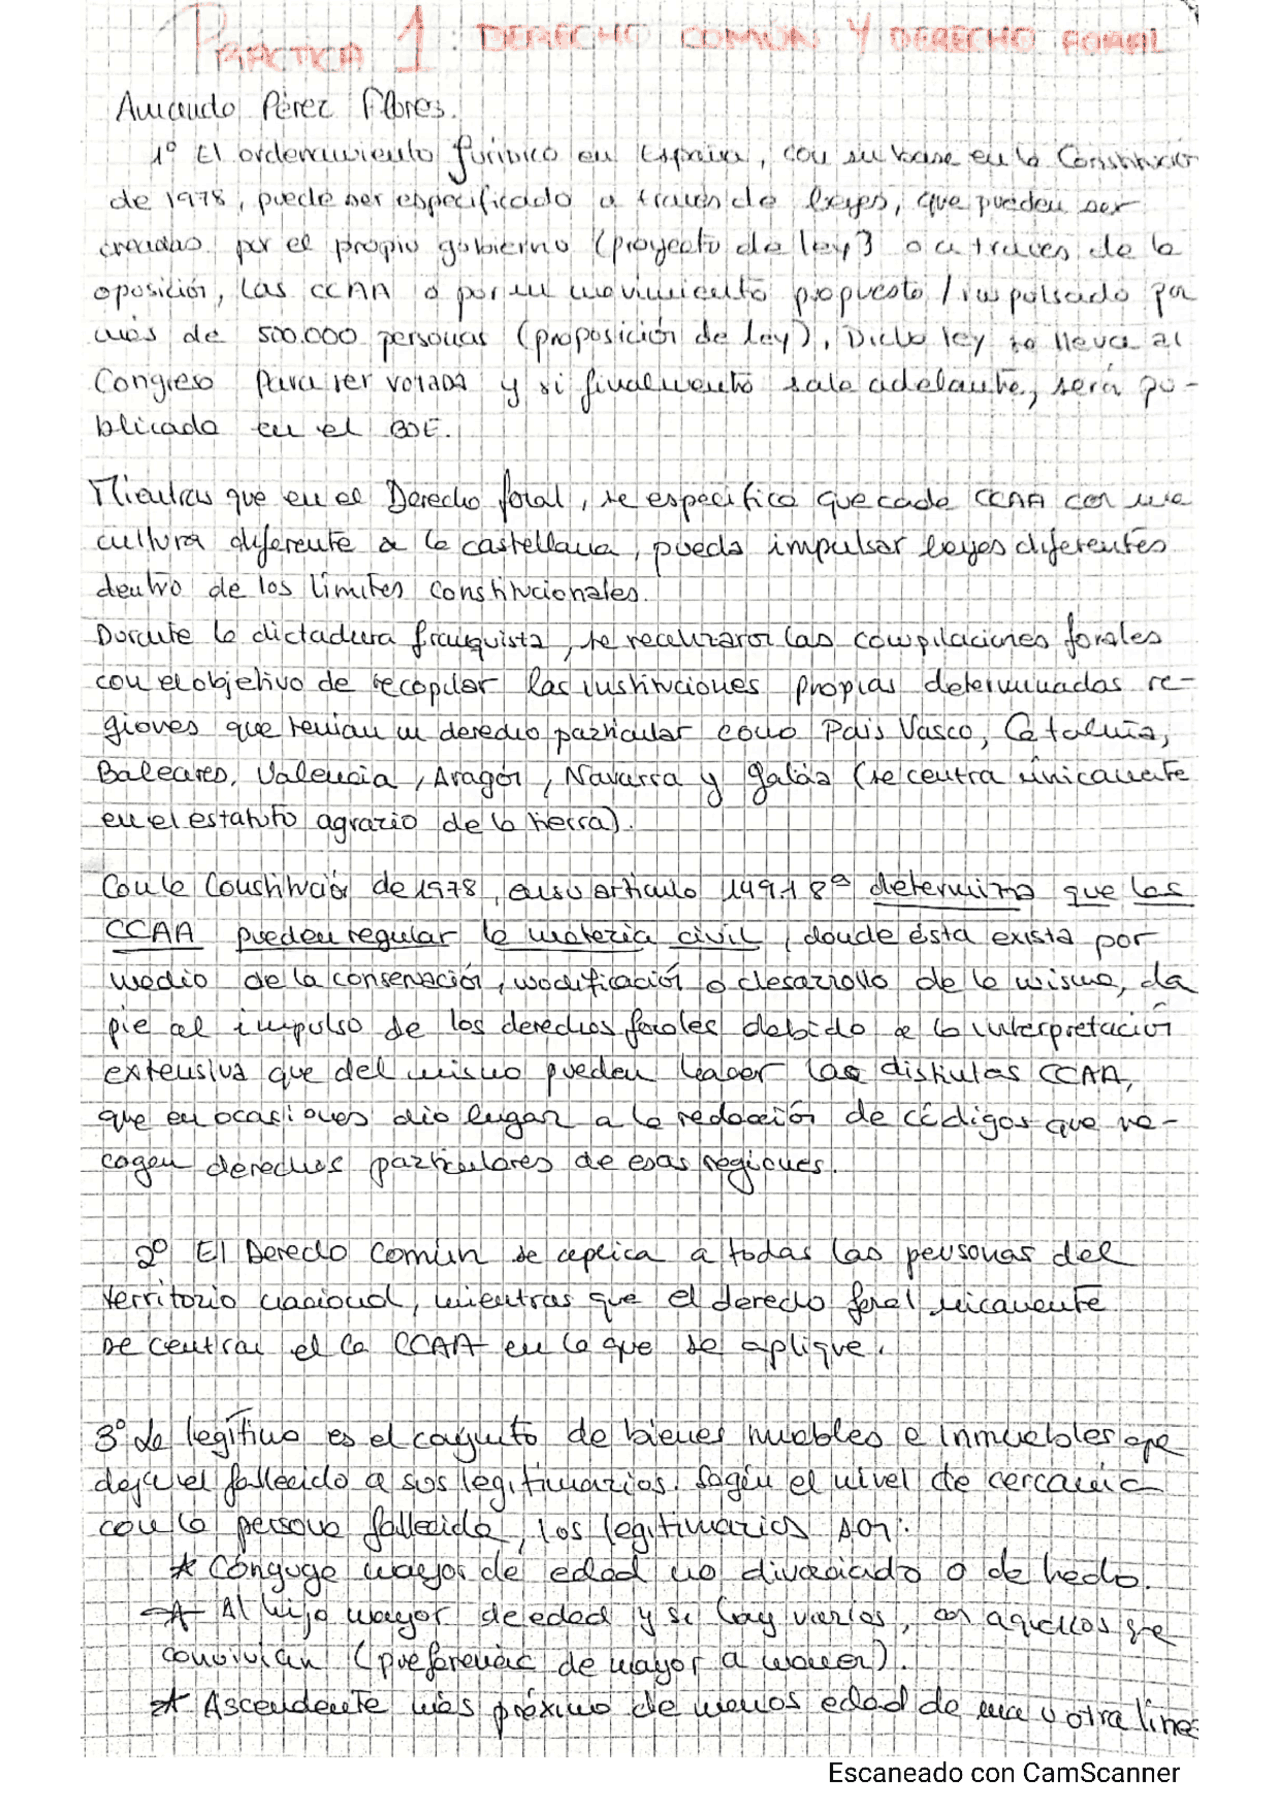 PRÁCTICA 1: DERECHO COMÚN Y DERECHO FORAL
Amando Pérez Flores.
1º El ordenamiento jurídico en España, con su base en la Constitución
de 1978, puede ser especificado a través de leyes, que pueden ser
creadas por el propio gobierno (proyecto de ley) o a través de la
oposición, las CCAA o por un movimiento propuesto / impulsado por
más de 500.000 personas (proposición de ley). Dicha ley se lleva al
Congreso para ser votada y si finalmente sale adelante, será pu-
blicada en el BOE.
Mientras que en el Derecho foral, se especifica que cada CCAA con una
cultura diferente a la castellana, pueda impulsar leyes diferentes
dentro de los límites constitucionales.
Durante la dictadura franquista, se realizaron las compilaciones forales
con el objetivo de recopilar las instituciones propias determinadas re-
giones que tenían un derecho particular como País Vasco, Cataluña,
Baleares, Valencia, Aragón, Navarra y Galicia (se centra únicamente
en el estatuto agrario de la tierra).
Con la Constitución de 1978, en su artículo 149.1 8ª determina que las
CCAA pueden regular la materia civil, donde ésta exista por
medio de la conservación, modificación o desarrollo de la misma, da
pie al impulso de los derechos forales debido a la interpretación
extensiva que del mismo pueden hacer las distintas CCAA,
que en ocasiones dio lugar a la redacción de códigos que re-
cogen derechos particulares de esas regiones.
2º El Derecho Común se aplica a todas las personas del
territorio nacional, mientras que el derecho foral únicamente
se centran el la CCAA en la que se aplique.
3º La legítima es el conjunto de bienes muebles e inmuebles que
deja el fallecido a sus legitimarios. Según el nivel de cercanía
con la persona fallecida, los legitimarios son:
* Cónyuge mayor de edad no divorciado o de hecho.
* Al hijo mayor de edad y si hay varios, con aquellos que
convivían (preferencia de mayor a menor).
* Ascendente más próximo de menos edad de una u otra línea
Escaneado con CamScanner